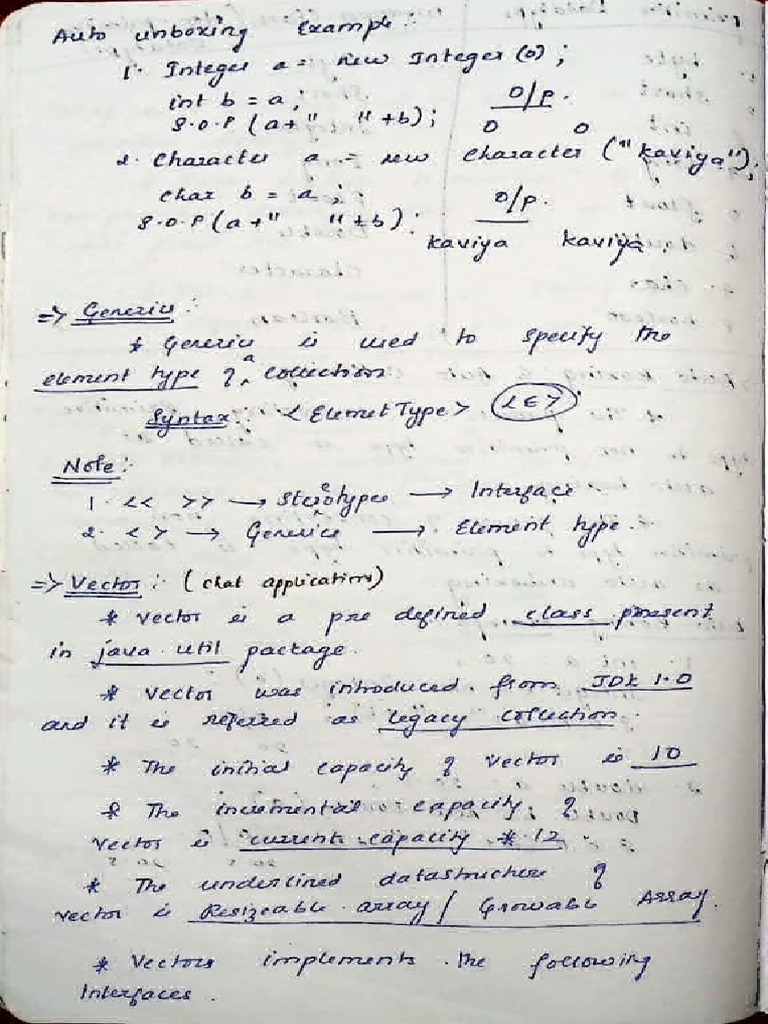 Auto unboxing Example :
1. Integer a = new Integer (0) ;
int b = a ; O/P.
S.O.P (a+" "+b) ; 0 0
2. Character a = new Character ("Kaviya");
Char b = a ; O/P.
S.O.P (a+" "+b) : Kaviya Kaviya.
=> Generics :
* Generics is used to specify the
element type of a collections
Syntax : < ElemetType > <E>
Note :
1. << >> → Stereotypes → Interface
2. < > → Generics → Element type.
=> Vector : (chat applications)
* Vector is a pre defined class present
in java.util package.
* Vector was introduced from JDK 1.0
and it is referred as legacy collection.
* The initial capacity of vector is 10
* The incremental capacity of
vector is current capacity * 12
* The underlined datastructure of
vector is Resizeable array / Growable Array.
* Vectors implements the following
Interfaces.